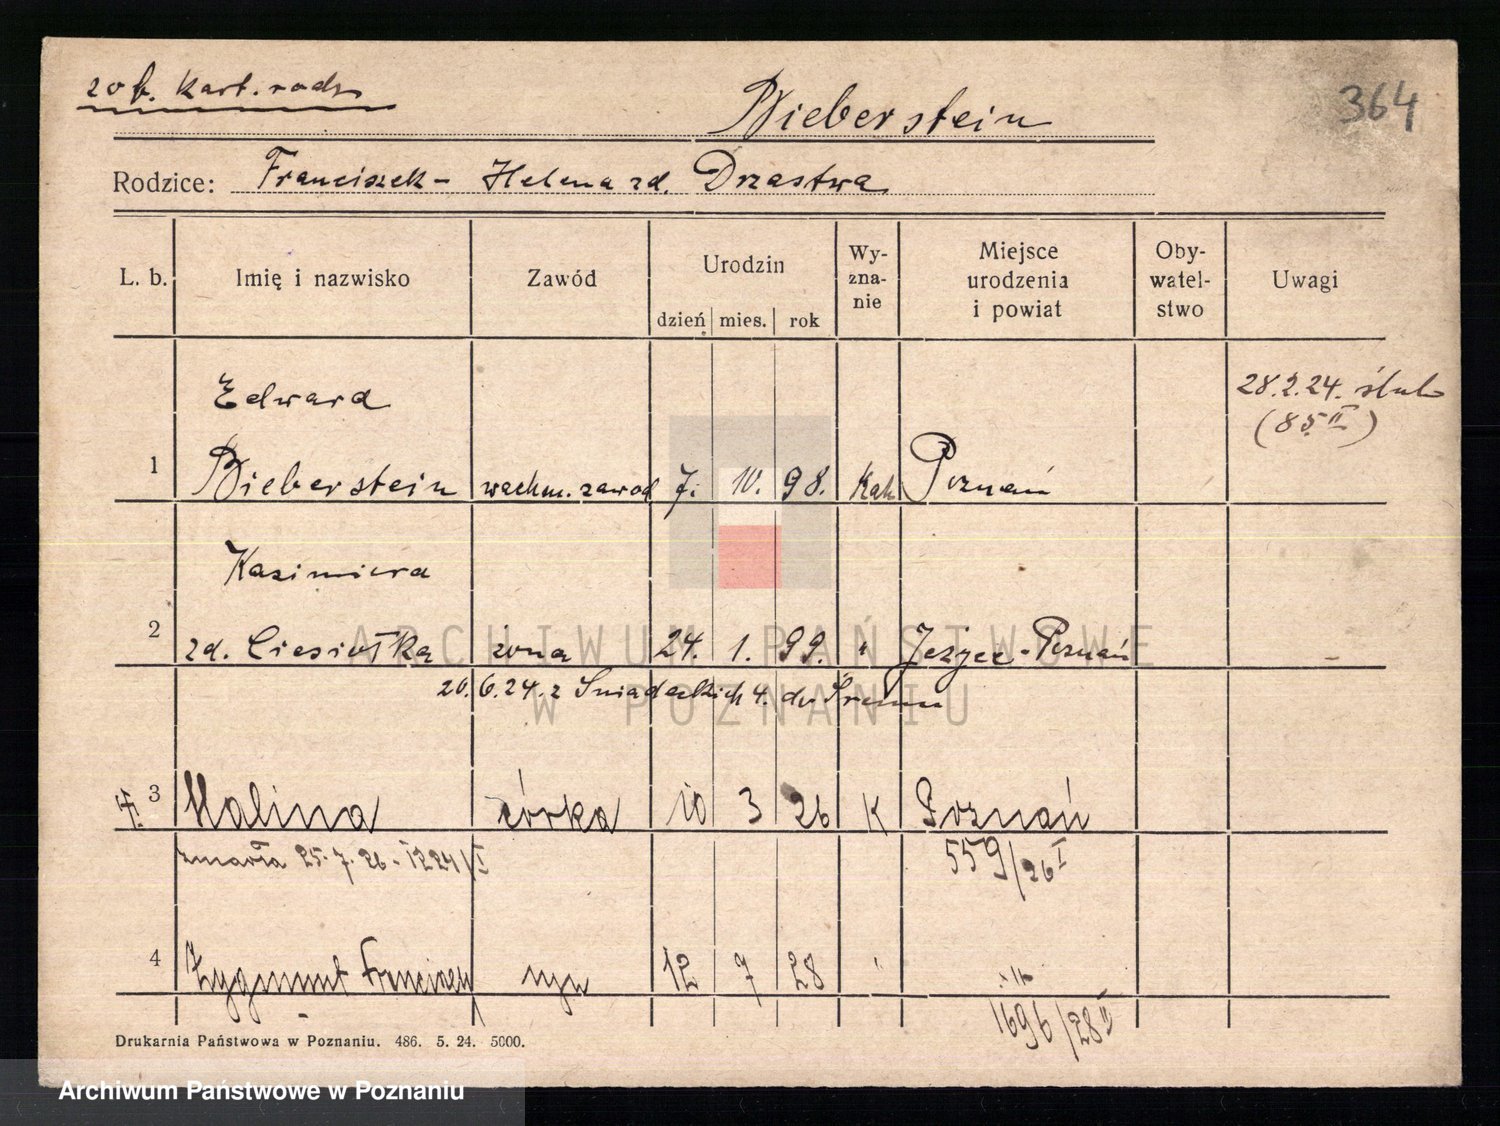 zob. kart. rodz.
Bieberstein
364
Rodzice: Franciszek - Helena zd. Drzastwa
L. b. Imię i nazwisko Zawód Urodzin dzień mies. rok Wy-zna-nie Miejsce urodzenia i powiat Oby-watel-stwo Uwagi
Edward
28.2.24. ślub
(85 II)
1 Bieberstein wachm. zawod 7. 10. 98. Kat Poznań
Kazimiera
2 zd. Ciesiołka żona 24. 1. 99. " Jeżyce - Poznań
20.6.24. z Śniadeckich 4. do Śremu
3 Halina córka 10 3 26 K Poznań
zmarła 25.7.26 - 1224/I
559/26 I
4 Zygmunt Franciszek syn 12 7 28 " "
1696/28 II
Drukarnia Państwowa w Poznaniu. 486. 5. 24. 5000.
ARCHIWUM PAŃSTWOWE
W POZNANIU
Archiwum Państwowe w Poznaniu